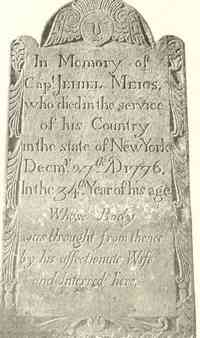 In Memory of
Capt. JEHIEL MEIGS,
who died in the service
of his Country
in the state of New York
Decmr. 27th AD 1776.
In the 34th Year of his age
Whose Body
was brought from thence
by his affectionate Wife
and Interred here.